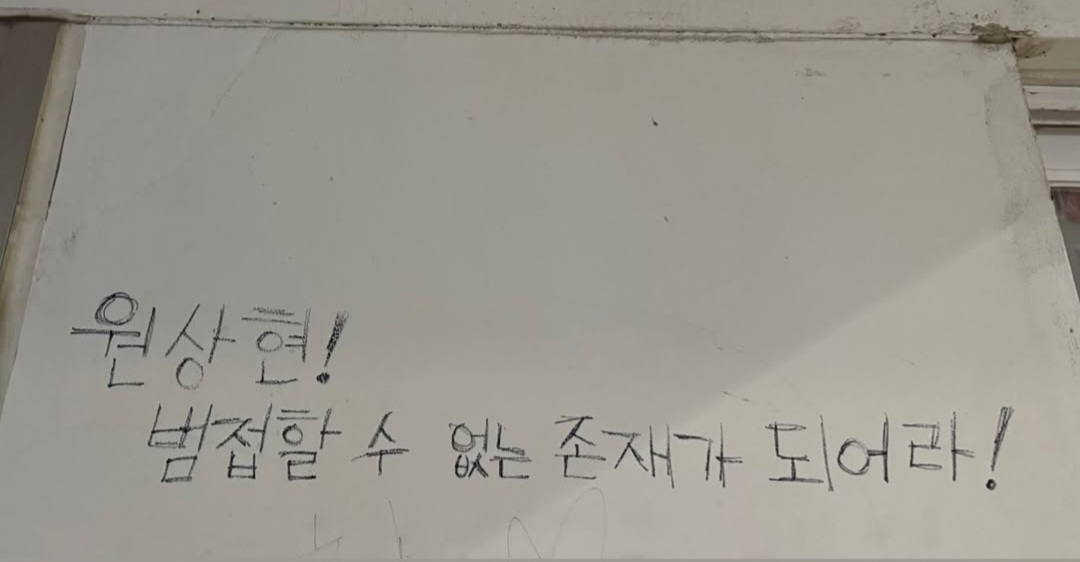 원상현!
범접할 수 없는 존재가 되어라!